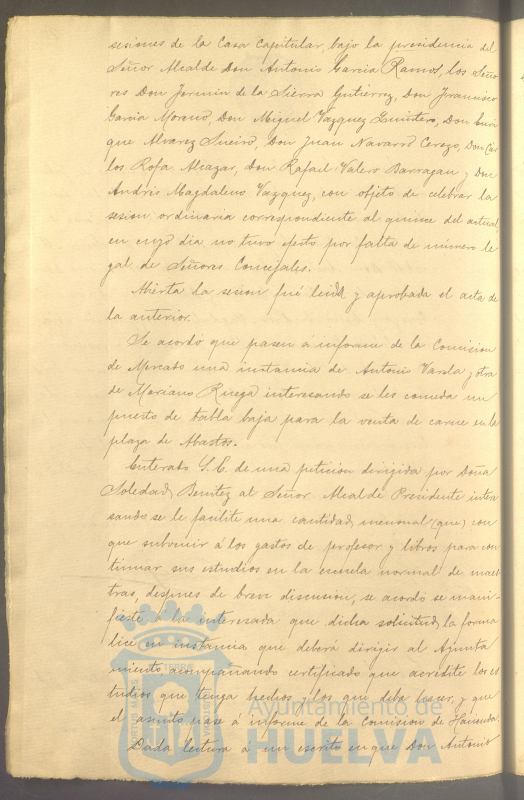 sesiones de la Casa Capitular, bajo la presidencia del
Señor Alcalde Don Antonio Garcia Ramos, los Seño
res Don Fermin de la Sierra Gutierrez, Don Francisco
Garcia Moreno, Don Miguel Vazquez Quintero, Don Enri
que Alvarez Sueiro, Don Juan Navarro Cerezo, Don Car
los Rofa Alcazar, Don Rafael Valero Barragan y Don
Andrés Magdaleno Vazquez, con objeto de celebrar la
sesion ordinaria correspondiente al quince del actual,
en cuyo dia no tuvo efecto por falta de número le
gal de Señores Concejales.
Abierta la sesion fué leida y aprobada el acta de
la anterior.
Se acordó que pasen á informe de la Comision
de Mercado una instancia de Antonio Varela y otra
de Mariano Ruega interesando se les conceda un
puesto de tabla baja para la venta de carne en la
plaza de Abastos.
Enterado S.E. de una peticion dirigida por Doña
Soledad Benitez al Señor Alcalde Presidente intere
sando se le facilite una cantidad mensual (que) con
que subvenir á los gastos de profesor y libros para con
tinuar sus estudios en la escuela normal de maes
tras, despues de breve discusion, se acordo se mani-
fieste á la interesada que dicha solicitud la forma
lice en instancia que deberá dirigir al Ayunta
miento acompañando certificado que acredite los es
tudios que tenga hechos y los que debe hacer, y que
el asunto pase á informe de la Comision de Hacienda.
Dada lectura á un escrito en que Don Antonio
Ayuntamiento de
HUELVA